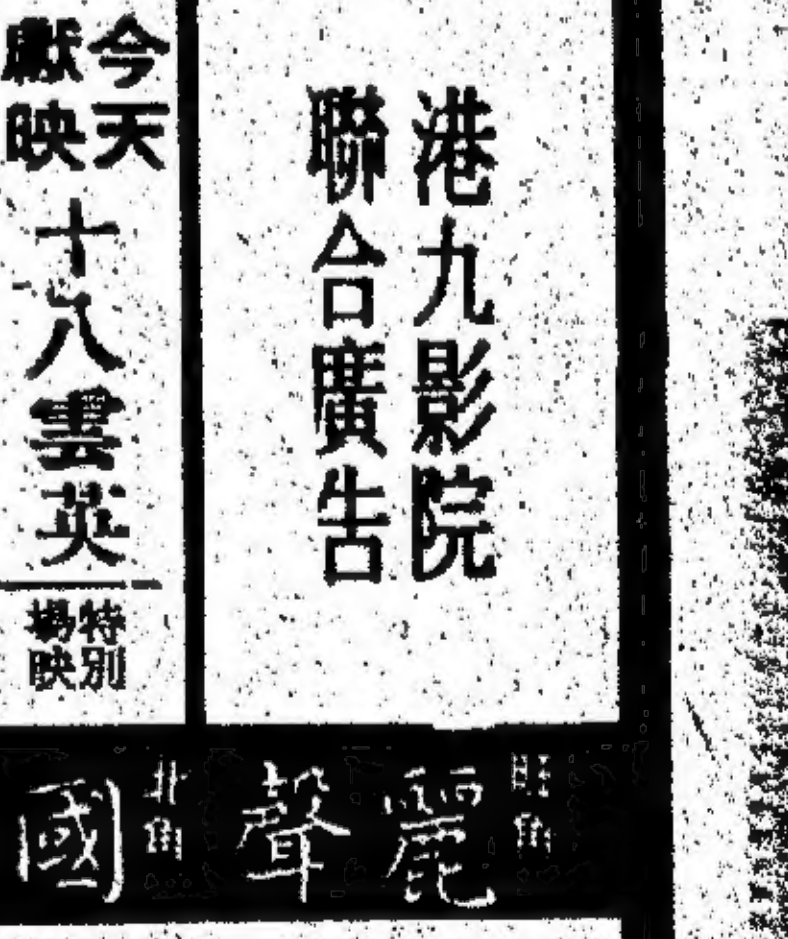 港九影院
聯合廣告
今天
獻映
十八雲英
特別
場映
旺角
麗聲
北角
國